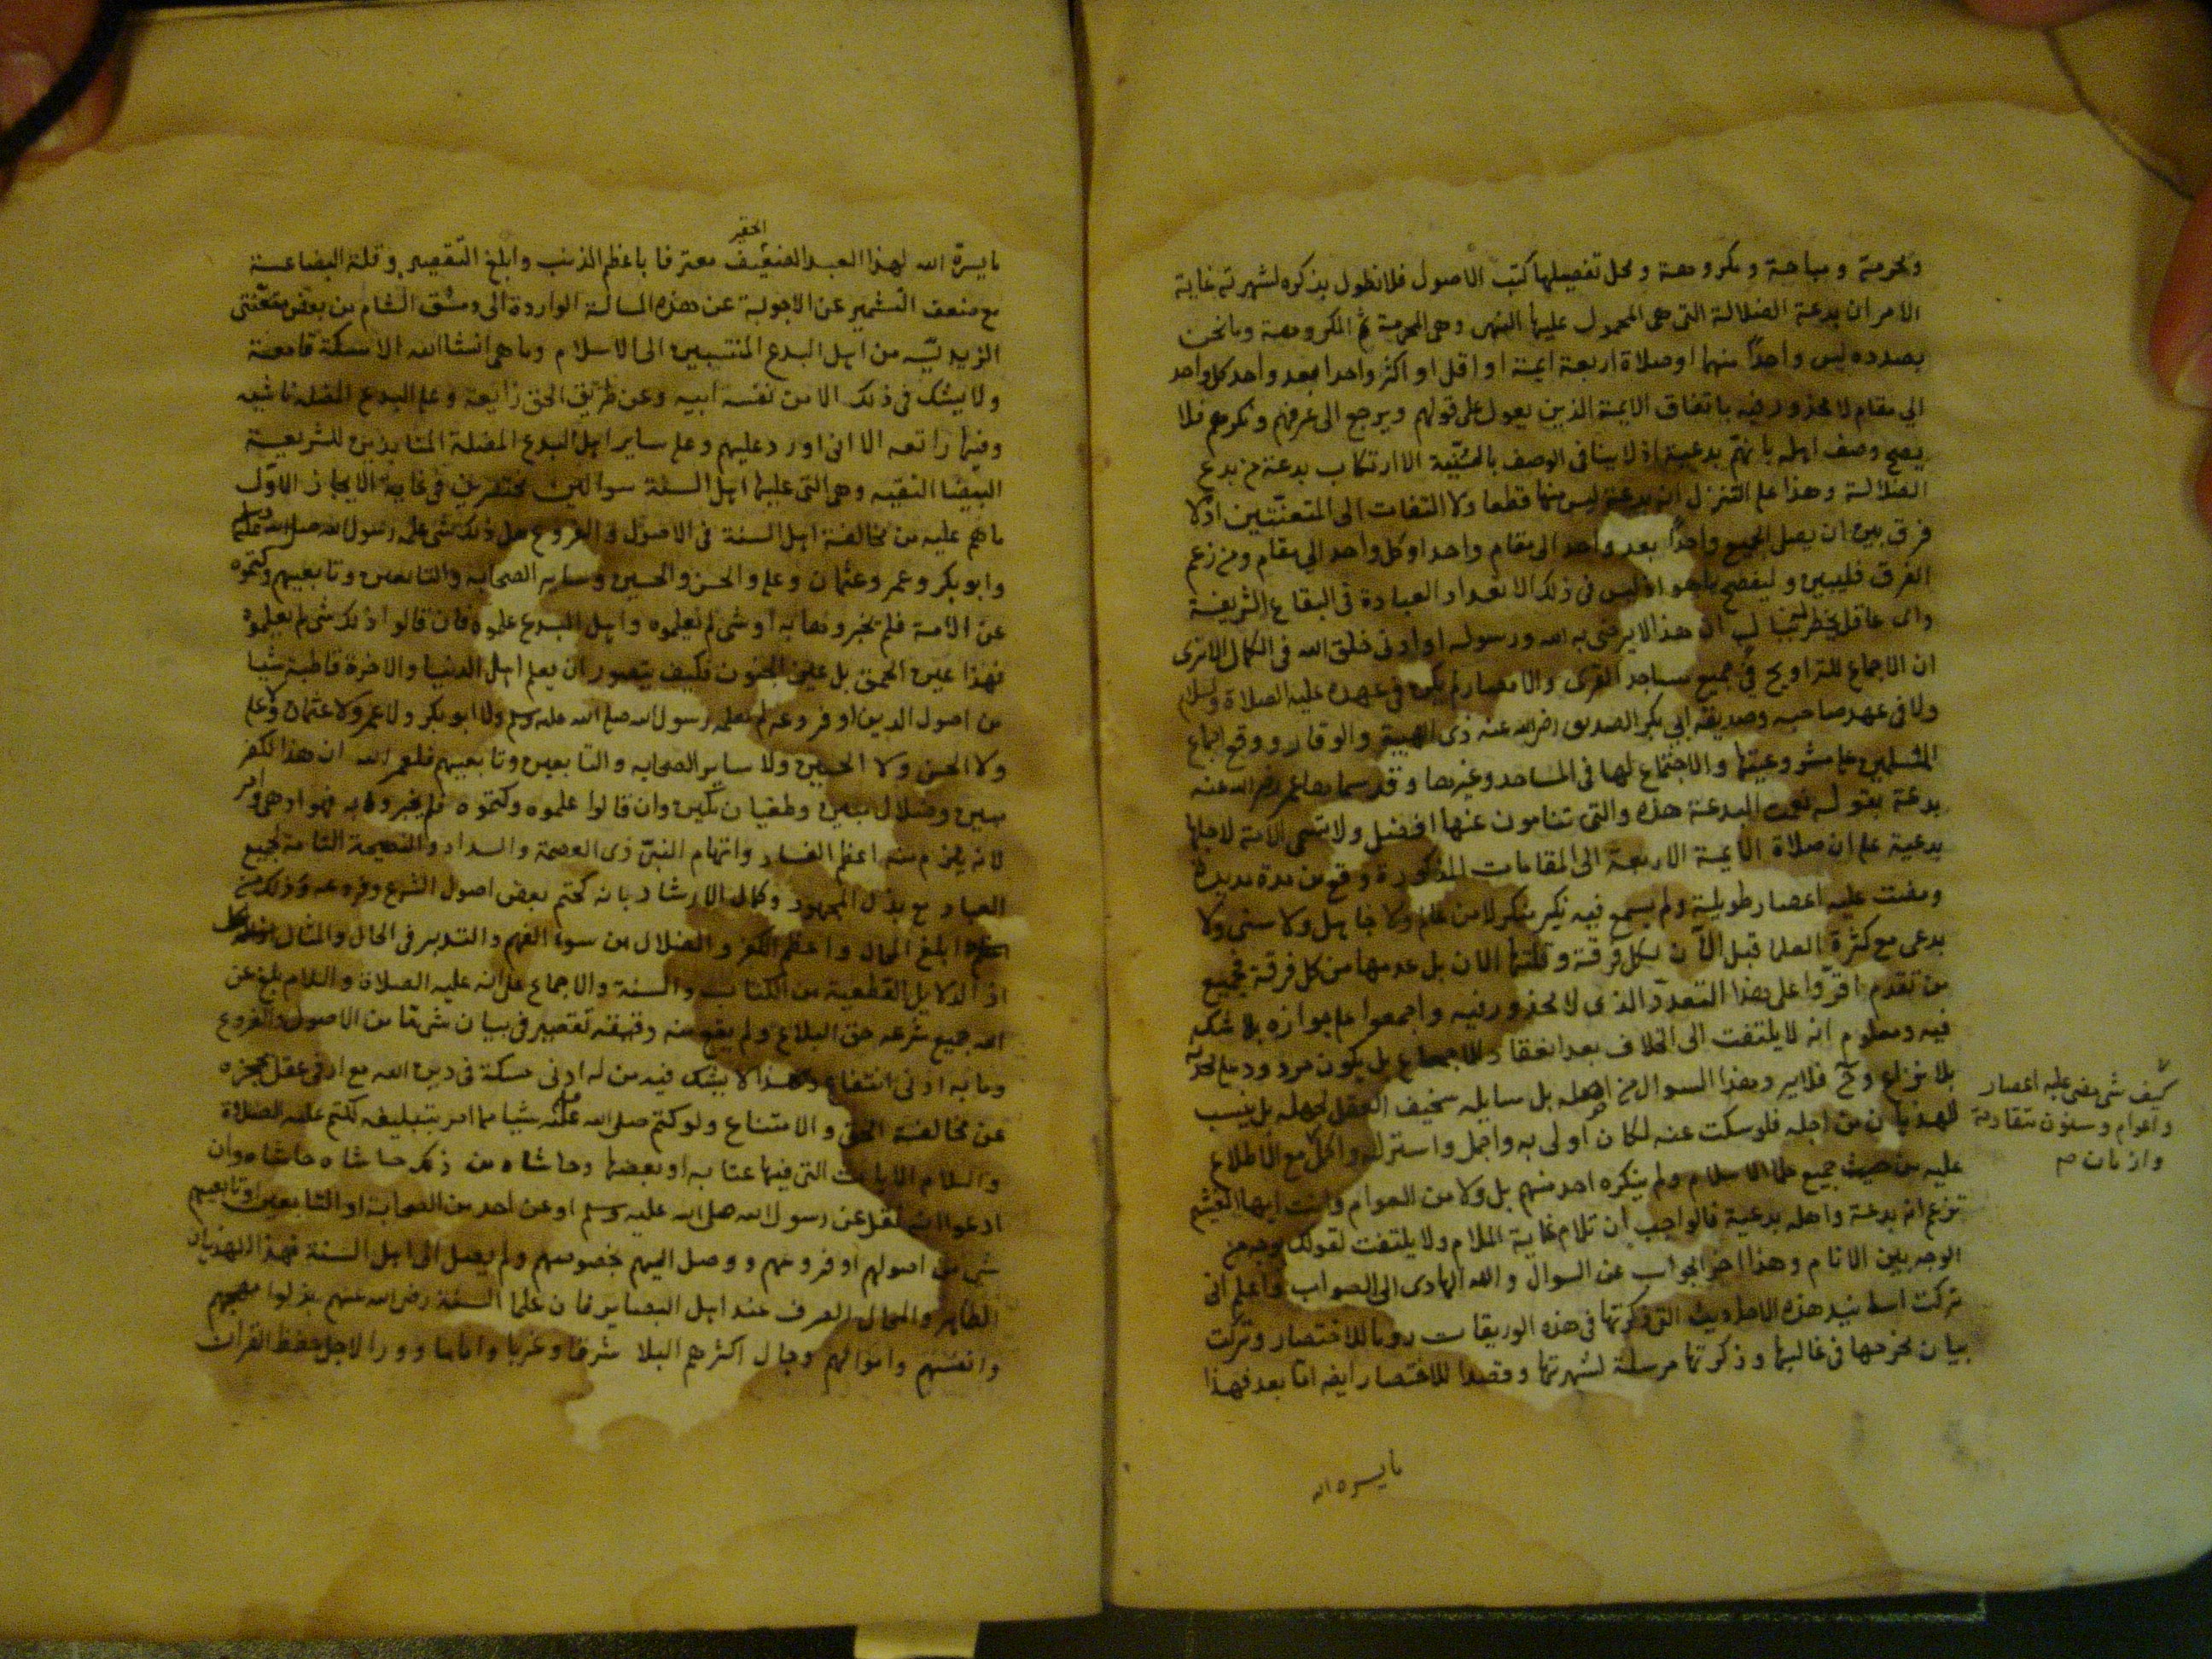 ومحرمة ومباحة ومكروهة ومحل تفصيلها كتب الاصول فلا نطول بذكره لشهرته غاية
الامر ان بدعة الضلالة التى هى المحمول عليها النهى وهى المحرمة ثم المكروهة وما نحن
بصدده ليس واحدًا منهما او صلاة اربعة ايمة او اقل او اكثر واحدا بعد واحد كل واحد
الي مقام لا محذور فيه باتفاق الايمة الذين يعول على قولهم ويرجع الى عرفهم ونكرهم فلا
يصح وصف اهله بانهم بدعية اذ لا ينافى الوصف بالسُنّية الا ارتكاب بدعة من بدع
الضلالة وهذا على التنزل انه بدعة ليس منها قطعا ولا التفات الى المتعنتين اذ لا
فرق بين ان يصلى الجميع واحدًا بعد واحد الى مقام واحد او كل واحد الي مقام ومن زعم
الفرق فليبين وليفصح ما هو اذ ليس فى ذلك الا تعداد العبادة فى البقاع الشريفة
واى عاقل يخطر ان هذا لا يرضى به الله ورسوله او ادنى خلق الله فى الكمال الا ترى
ان الاجماع للتراويح في جميع مساجد القرى والامصار لم يكن فى عهده عليه الصلاة والسلام
ولا فى عهد صاحبه وصديقه ابي بكر الصديق رضى الله عنه ذى الهيبة والوقار ووقع اجماع
المسلمين على مشروعيتها والاجتماع لها فى المساجد وغيرها وقد سماها عمر رضى الله عنه
بدعة بقوله نعمت البدعة هذه والتى تنامون عنها افضل ولا تسمى الامة لاجلها
بدعية على ان صلاة الايمة الاربعة الى المقامات المذكورة وقع من مدة مديدة
ومضت عليه اعصار طويلة ولم يسمع فيه نكير منكر لا من عالم ولا جاهل ولا سنى ولا
بدعى مع كثرة العلما قبل الآن لكل فرقة وقلتها الان بل عدمها من كل فرقة فجميع
من تقدم اقرّوا على هذا التعدد الذى لا محذور فيه واجمعوا على جوازه بلا شك
فيه ومعلوم انه لا يلتفت الى الخلاف بعد انعقاد الاجماع بل يكون مردود على
بلا نزاع وهذا السوال من اجهله بل سايله سخيف العقل لجهله بل ينسب
للهذيان من اجله فلو سكت عنه لكان اولى به واجمل واستر له واكمل مع الاطلاع
عليه من حيث جميع علما الاسلام ولم ينكره احد منهم بل ولا من العوام وانت ايها
تزعم انه بدعة واهله بدعية فالواجب ان تلام غاية الملام ولا يلتفت لقولك بوجه من
الوجه بين الانام وهذا اخر الجواب عن السوال والله الهادى الى الصواب واعلم انى
تركت اسانيد هذه الاحاديث التى ذكرتها فى هذه الوريقات روما للاختصار وتركت
بيان مخرجها فى غالبها وذكرتها مرسلة لشهرتها وقصدا للاختصار ايضا اما بعد فهذا
كيف شى مضى عليه اعصار
واعوام وسنون متقادمة
وازمان
ما يسره الله
الحقير
ما يسرّه الله لهذا العبد الضعيف معترفا باعظم الذنب وابلغ التقصير وقلة البضاعة
مع ضعف التشمير عن الاجوبة عن هذه المسالة الواردة الى دمشق الشام من بعض متعنتى
الزيديّه من اهل البدع المنتسبين الى الاسلام وما هى انشا الله الا مسكتة قامعة
ولا يشك فى ذلك الا من نفسه ابيه وعن طريق الحق زايغة وعلى البدع المضله
وفيها راتعه الا انى اورد عليهم وعلى ساير اهل البدع المضلة المنابذين للشريعة
البيضا النقيه وهى التى عليها اهل السنة سوالين مختصرين فى غاية الايجاز الاوّل
ما هم عليه من مخالفة اهل السنة فى الاصول والفروع هل ذلك شى علمه رسول الله صلى الله عليه وسلم
وابو بكر وعمر وعثمان وعلى والحسن والحسين وساير الصحابه والتابعين وتابعيهم وكتموه
عن الامة فلم يخبروها به او شى لم يعلموه واهل البدع علموه فان قالوا ذلك شى لم يعلموه
فهذا عين الحمق بل عين الجنون فكيف يتصور ان يعلم اهل الدنيا والاخرة قاطبة شيا
من اصول الدين او فروعه لم يعلمه رسول الله صلى الله عليه وسلم ولا ابو بكر ولا عمر ولا عثمان ولا على
ولا الحسن ولا الحسين ولا ساير الصحابه والتابعين وتابعيهم فلعمر الله ان هذا لكفر
مبين وضلال مبين وطغيان مكين وان قالوا علموه وكتموه فلم يخبروا به فهو ادهى وامر
لانه يلزم منه اعظم الفساد واتهام النبىّ ذى العصمة والسداد والنصيحة التامة لجميع
العباد مع بذل المجهود وكمال الارشاد بانه كتم بعض اصول الشرع وفروعه وذلك من
ابلغ المحال واعظم الكفر والضلال من سوء الفهم والتدبر فى الحال والمثال
اذ الدلايل القطعية من الكتاب والسنة والاجماع على انه عليه الصلاة والسلام بلغ عن
الله جميع شرعه حق البلاغ ولم يقع منه تقصير فى بيان شى ما من الاصول والفروع
وما به ادنى انتفاع وهذا لا يشك فيه من له ادنى مسكة فى دين الله مع ادنى عقل يحجزه
عن مخالفة الحق والامتناع ولو كتم صلى الله عليه وسلم شيا مما امر بتبليغه لكتم عليه الصلاة
والسلام الايات التى فيها عتابه او بعضها وحاشاه من ذلك حاشاه حاشاه وان
ادعوا انه نقل عن رسول الله صلى الله عليه وسلم او عن احد من الصحابة او التابعين او تابعيهم
شى من اصولهم او فروعهم ووصل اليهم بخصوصهم ولم يصل الى اهل السنة فهذا الهذيان
الظاهر والمحال الصرف عند اهل البصاير فان علما السنة رضى الله عنهم بذلوا مهجهم
وانفسهم واموالهم وجال اكثرهم البلا شرقا وغربا واماما وورا لاجل حفظ القران